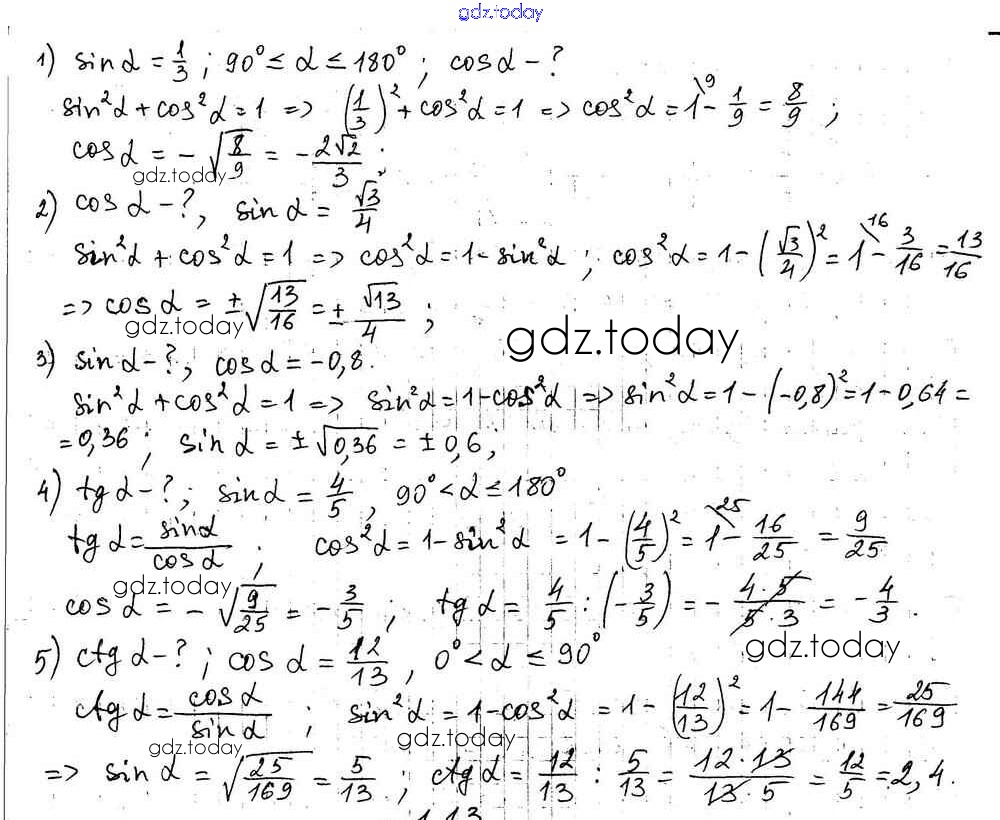 gdz.today
1) sin α = 1/3 ; 90° ≤ α ≤ 180° ; cos α - ?
sin²α + cos²α = 1 => (1/3)² + cos²α = 1 => cos²α = 1\9 - 1/9 = 8/9 ;
cos α = - √(8/9) = - 2√2/3 .
gdz.today
2) cos α - ?, sin α = √3/4
sin²α + cos²α = 1 => cos²α = 1 - sin²α ; cos²α = 1 - (√3/4)² = 1\16 - 3/16 = 13/16
=> cos α = ± √(13/16) = ± √13/4 ;
gdz.today
gdz.today
3) sin α - ?, cos α = -0,8.
sin²α + cos²α = 1 => sin²α = 1 - cos²α => sin²α = 1 - (-0,8)² = 1 - 0,64 =
= 0,36 ; sin α = ± √0,36 = ± 0,6 ,
4) tg α - ? ; sin α = 4/5 , 90° < α ≤ 180°
tg α = sin α/cos α ; cos²α = 1 - sin²α = 1 - (4/5)² = 1\25 - 16/25 = 9/25
gdz.today
cos α = - √(9/25) = - 3/5 ; tg α = 4/5 : (- 3/5) = - 4·5/5·3 = - 4/3 .
gdz.today
5) ctg α - ? ; cos α = 12/13 , 0° < α ≤ 90°
ctg α = cos α/sin α ; sin²α = 1 - cos²α = 1 - (12/13)² = 1 - 144/169 = 25/169
gdz.today
gdz.today
=> sin α = √(25/169) = 5/13 ; ctg α = 12/13 : 5/13 = 12·13/13·5 = 12/5 = 2,4.